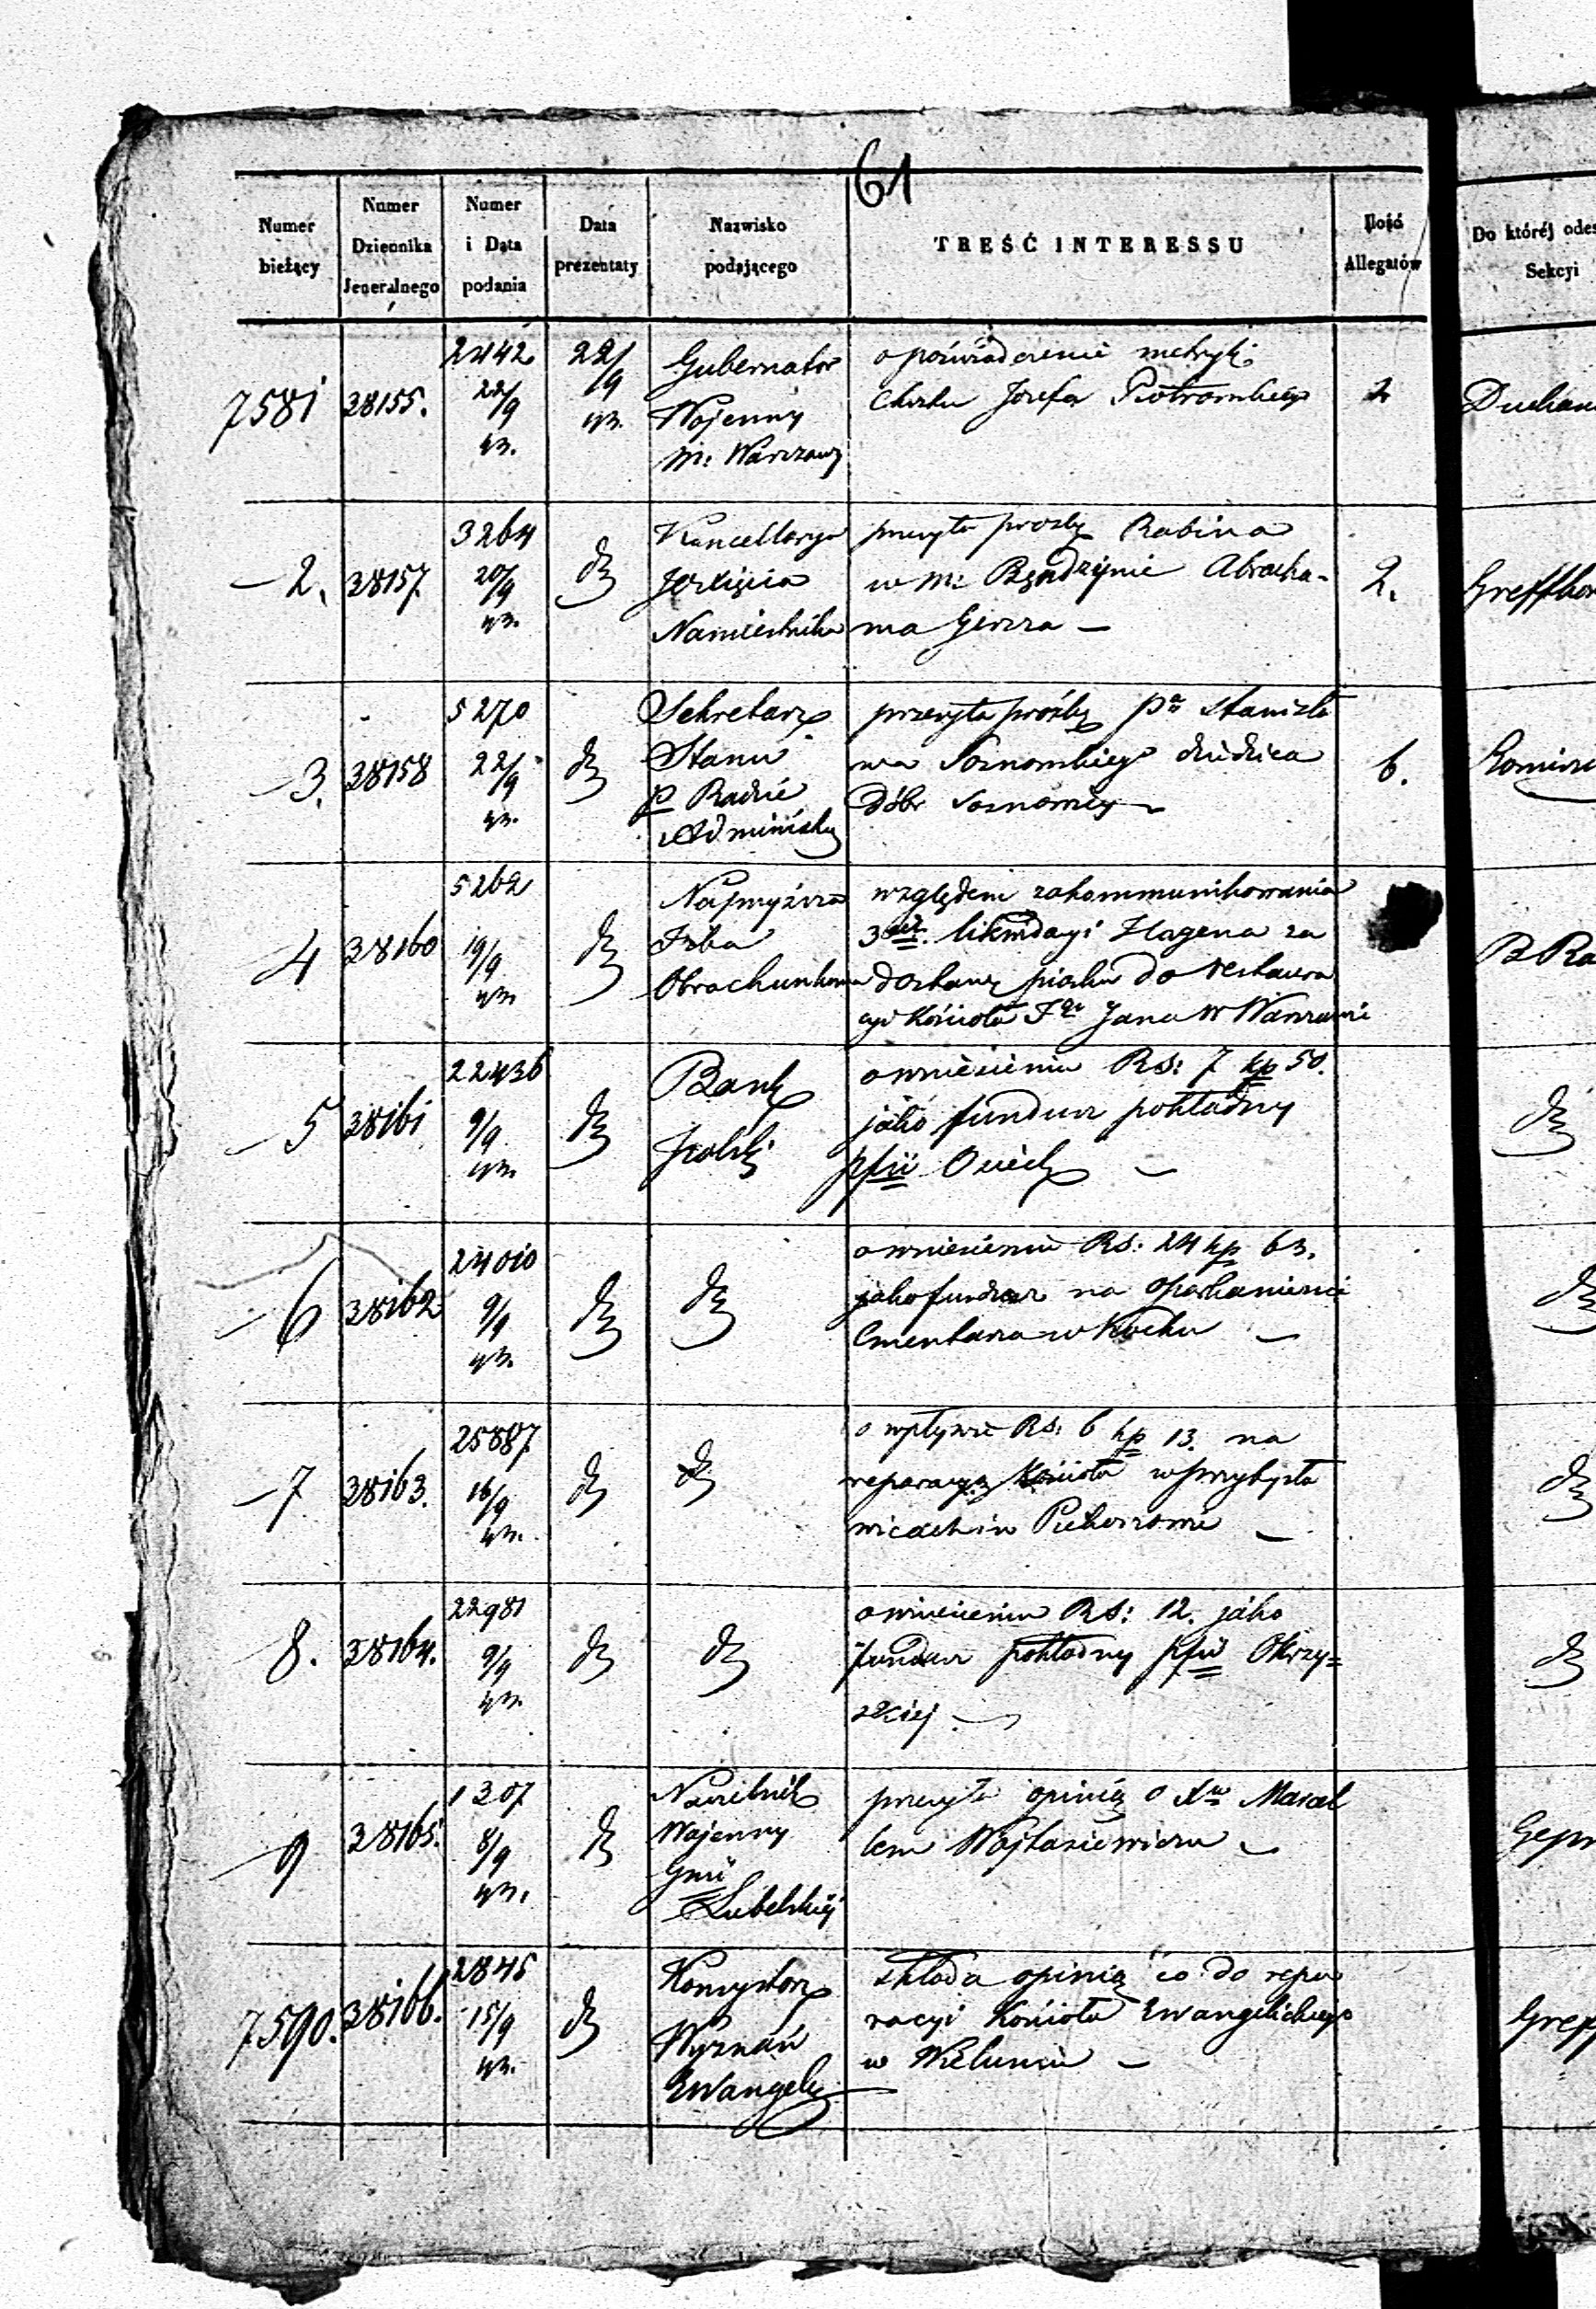 61
Numer bieżący
Numer Dziennika Jeneralnego
Numer i Data podania
Data prezentaty
Nazwisko podającego
TREŚĆ INTERESSU
Ilość Allegatów
Do któréj odes
Sekcyi
7581 38155. 2442 22/9 43. 22/9 43.
Gubernator
Wojenny
m: Warszawy
o poświadczenie metryki
chrztu Jozefa Piotrowskiego
2
Duchow
2. 38157 3264 20/9 43. dto
Kancellarya
JO Xięcia
Namiestnika
przesyła prozbę Rabina
w m: Będzynie Abraha-
ma Gierza —
2.
3. 38158 5270 22/9 43. dto
Sekretarz
Stanu
p Radzie
Administr
przesyła prózbę Pa Stanisła
wa Sosnowskiego dziedzica
dóbr Sosnowicy —
6.
4 38160 5262 19/9 43. dto
Najwyższa
Izba
Obrachunkowa
względem zakommunikowania
likwidacyi Hagena za
dostawę piasku do restaura
cyi Kościoła Sgo Jana w Warszawie
5 38161 22436 9/9 43. dto
Bank
Polski
o wniesieniu Rs: 7 kp 50.
jako fundusz pokładny
pfii Osieck —
dto
6 38162 24010 9/9 43. dto dto
o wniesieniu Rs: 24 kp 63.
jako fundusz na oparkanienie
Cmentarza w Kocku —
dto
7 38163. 25887 16/9 43. dto dto
o wpływie Rs: 6 kp 13. na
reparacyą Kościoła w Przybysła
wicach
dto
8. 38164. 22981 9/9 43. dto dto
o wniesieniu Rs: 12. jako
fundusz pokładny pfii Okrzy=
skiej —
dto
9 38165. 1307 8/9 43. dto
Naczelnik
Wojenny
Gnii
Lubelskiéj
przesyła opinią o Xdzu Marcel
lem Wojtasiewiczu —
7590. 38166. 2845 15/9 43. dto
Konsystorz
Wyznań
Ewangelic
składa opinią co do repa
racyi Kościoła Ewangelickiego
w Wieluniu —